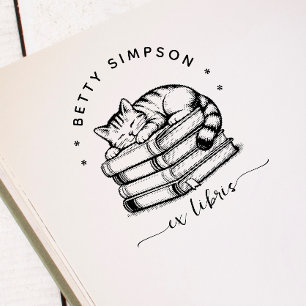 BETTY SIMPSON
ex libris